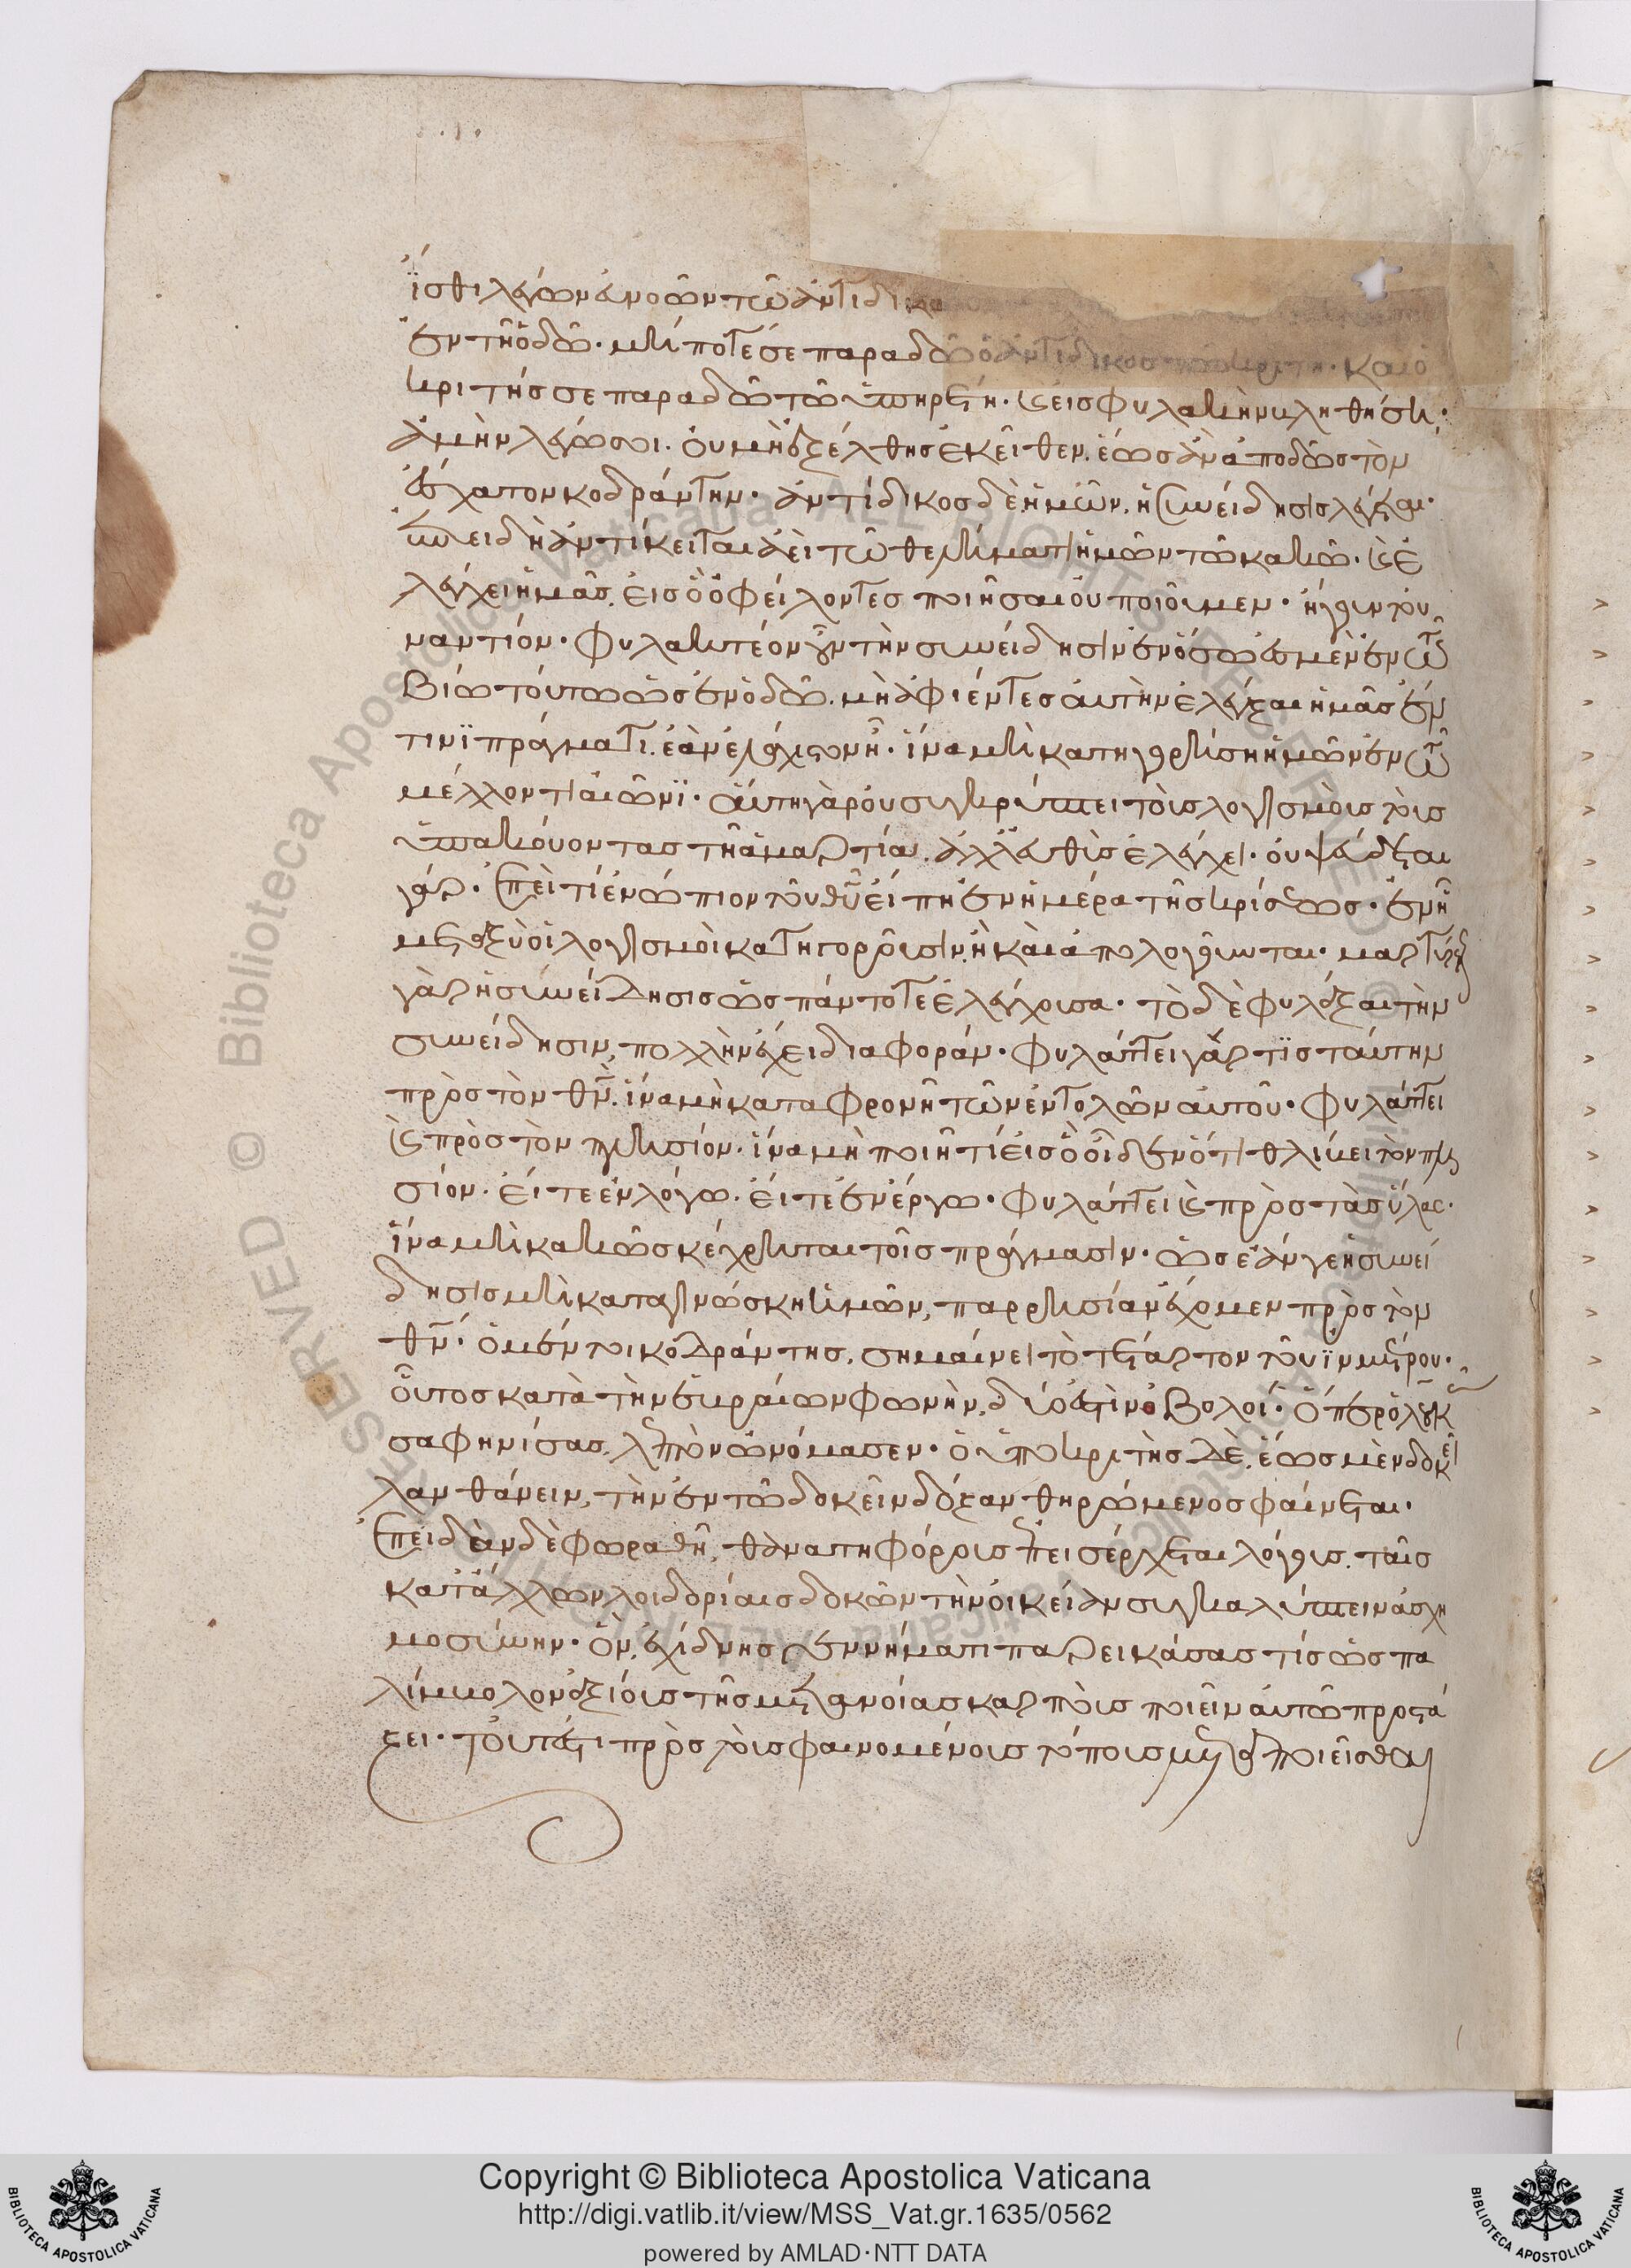 ἴσθι λέγων εὐνοῶν τῷ ἀντιδίκω
ἐν τῆ ὁδῶ· μήποτέ σε παραδῶ ὁ ἀντίδικος τῶ κριτῆ· καὶ ὁ
κριτής σε παραδῶ τῶ ὑπηρέτη· καὶ εἰς φυλακὴν βληθήση·
ἀμὴν λέγω σοι· οὐ μὴ ἐξέλθης ἐκεῖθεν. ἕως ἂν ἀποδῶς τὸν
ἔσχατον κοδράντην· ἀντίδικος δὲ ἡμῶν. ἡ συνείδησις λέγεται·
ἐπειδὴ ἀντίκειται ἀεὶ τῶ θελήματι ἡμῶν τῶ κακῶ· καὶ ἐ
λέγχει ἡμᾶς. εἰς ὃ ὀφείλοντες ποιῆσαι οὐ ποιοῦμεν· ἤγουν τοὐ
ναντίον· φυλακτέον οὖν τὴν συνείδησιν ἐν ὅσω ἐσμὲν ἐν τῶ
βίω τούτω ὡς ἐν ὁδῶ. μὴ ἀφιέντες αὐτὴν ἐλέγξαι ἡμᾶς ἔν
τινϊ πράγματι. ἐὰν ἐλάχιστον ἦ· ἵνα μὴ κατηγορήση ἡμῶν ἐν τῶ
μέλλοντι αἰῶνϊ· αὕτη γὰρ οὐ συγκρύπτει τοὺς λογισμοὺς τοὺς
ὑπακούοντας τῆ ἁμαρτία. ἀλλ' εὐθὺς ἐλέγχει· οὐ ψεύδεται
γάρ· ἐπεὶ τί ἐνώπιον τοῦ θῦ εἴπη ἐν ἡμέρα τῆς κρίσεως· ἐν ἧ
μεταξὺ οἱ λογισμοὶ κατηγοροῦσιν, ἢ καὶ ἀπολογοῦνται· μαρτυρεῖ
γὰρ ἡ συνείδησις ὡς πάντοτε ἐλέγχουσα· τὸ δὲ φυλάξαι τὴν
συνείδησιν, πολλὴν ἔχει διαφοράν· φυλάττει γάρ τϊς ταύτην
πρὸς τὸν θν̅. ἵνα μὴ καταφρονῆ τῶν ἐντολῶν αὐτοῦ· φυλάττει
καὶ πρὸς τὸν πλησίον· ἵνα μὴ ποιῆ τί εἰς ὃ οἶδεν ὅτι θλίβει τὸν πλη
σίον· εἴτε ἐν λόγω. εἴτε ἐν ἔργω· φυλάττει καὶ πρὸς τὰς ὕλας·
ἵνα μὴ κακῶς κέχρηται τοῖς πράγμασιν· ὡς ἐάν γε ἡ συνεί
δησις μὴ καταγινώσκη ἡμῶν, παρρησίαν ἔχομεν πρὸς τὸν
θν̅· ὁ μέντοι κοδράντης. σημαίνει τὸ τέταρτον τοῦ ϊνμέρου·
οὗτος κατὰ τὴν ἑβραίων φωνὴν, δύο ἐστὶν ὀβολοί· ὅπερ ὁ λουκᾶς
σαφηνίσας. λεπτὸν ὠνόμασεν· ὁ ὑποκριτὴς δὲ. ἕως μὲν δοκεῖ
λανθάνειν, τὴν ἐν τῶ δοκεῖν δόξαν θηρώμενος φαίνεται·
ἐπειδὰν δὲ φωραθῆ, θανατηφόρους ἐπεισέρχεται λόγους. ταῖς
κατ' ἄλλων λοιδορίαις δοκῶν τὴν οἰκείαν συγκαλύπτειν ἀσχη
μοσύνην· ὃν, ἐχίδνης γεννήματι παρεικάσας τίς ὡς πα
λίμβολον ἀξίους τῆς μετανοίας καρποὺς ποιεῖν αὐτῶ προστά
ξει· τουτέστι πρὸς τοὺς φαινομένους τόπους μετα ποιεῖσθαι
Copyright © Biblioteca Apostolica Vaticana
http://digi.vatlib.it/view/MSS_Vat.gr.1635/0562
powered by AMLAD·NTT DATA
BIBLIOTECA APOSTOLICA VATICANA
BIBLIOTECA APOSTOLICA VATICANA